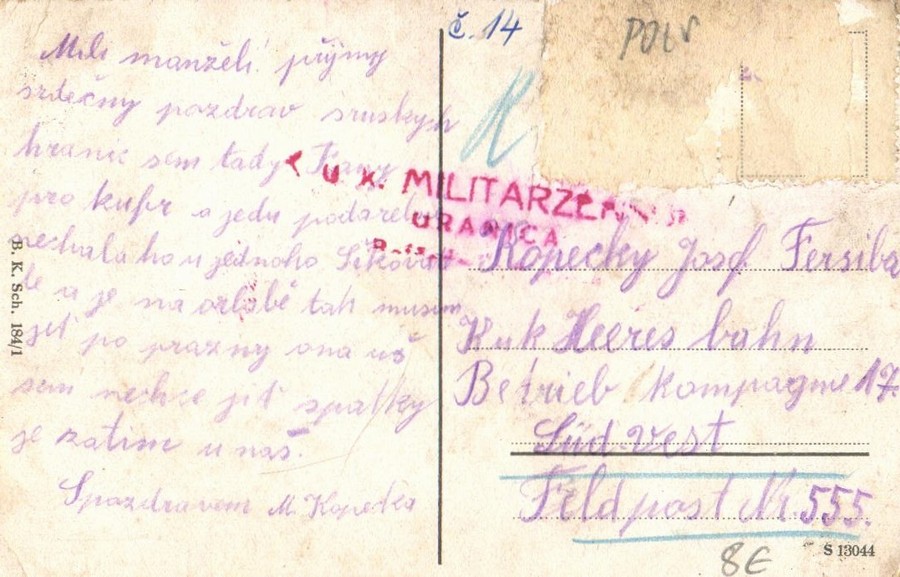 Č. 14
Milí manželi! přijmy
srdečny pozdrav sruskych
hranic sem tady
pro kufr a jedu podarebu
nechala ho u jednoho
a je na orlobě tak musim
jiť po prazny ona už
sem nechce jiť spatky
je zatim u nás.
Spozdravem M. Kopecka
U. K. MILITARZEN
URANICA
Kopecky Josef Fersiba
Kuk Heeres bahn
Betrieb Kompagnie 17.
Süd vest
Feldpost Nr. 555.
B. K. Sch. 184/1
8€
S 13044